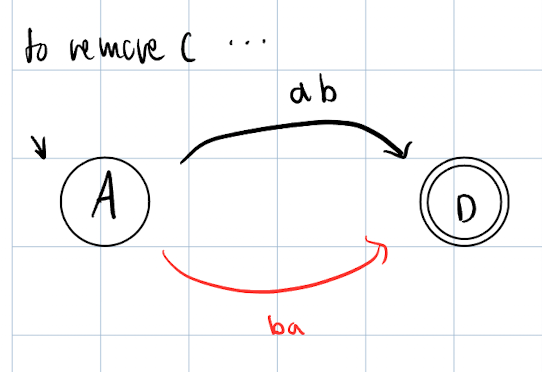 to remove C ...
ab
A
D
ba